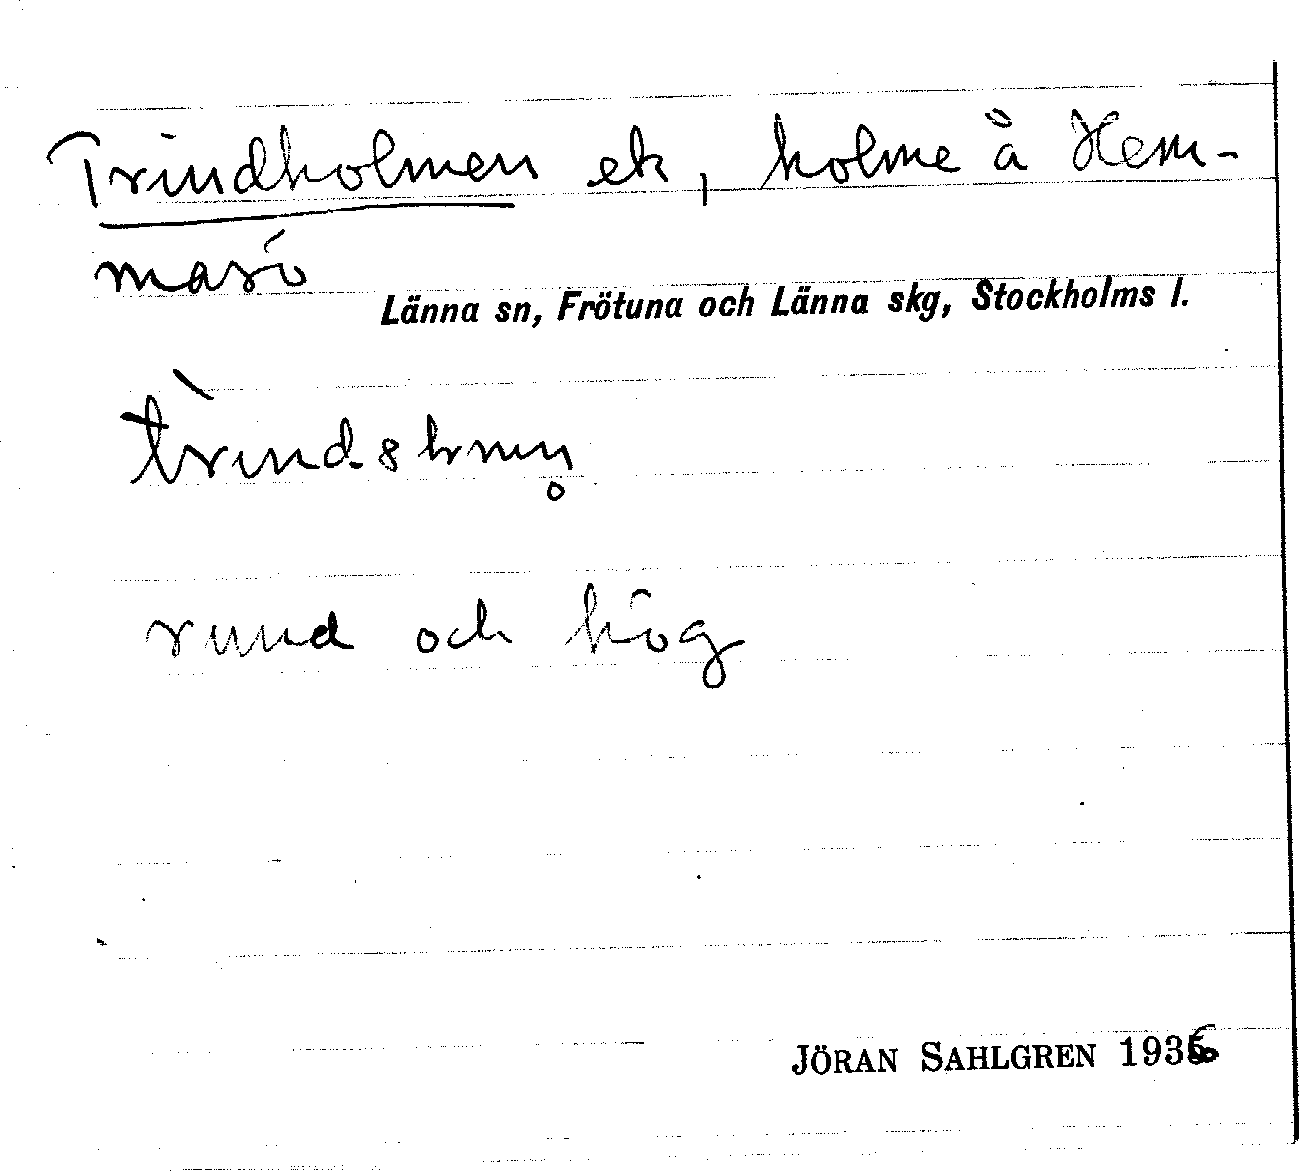 Trindholmen ek, holme å Hem-
masö
Länna sn, Frötuna och Länna skg, Stockholms l.
rund och hög
JÖRAN SAHLGREN 1936